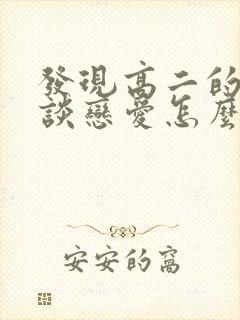 發現高二的
談戀愛怎麼
安安的窩